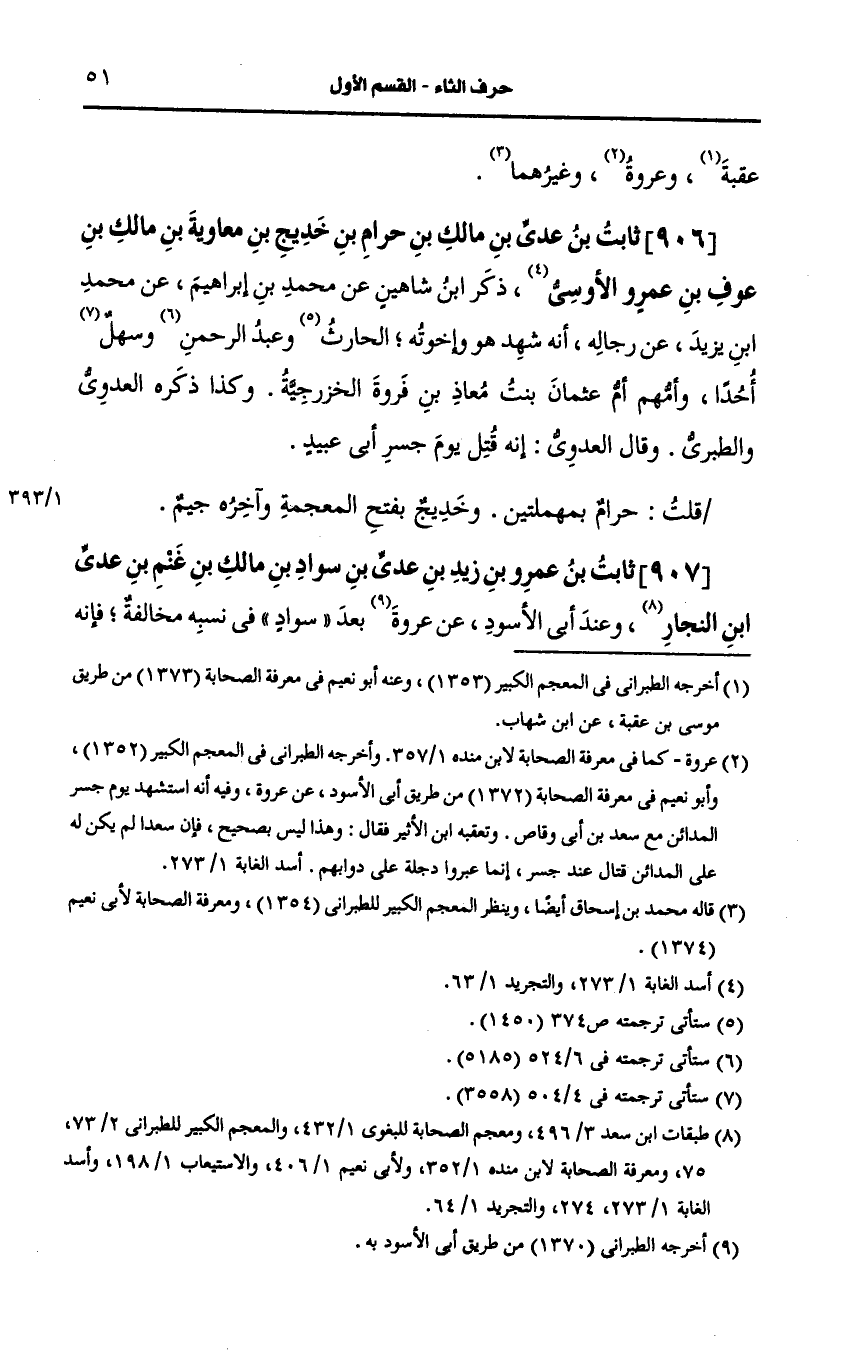 حرف الثاء - القسم الأول ٥١
عقبةَ(١) ، وعروةُ(٢) ، وغيرُهما(٣) .
[٩٠٦] ثابتُ بنُ عدىِّ بنِ مالكِ بنِ حرامِ بنِ خَدِيجِ بنِ معاويةَ بنِ مالكِ بنِ
عوفِ بنِ عمرٍو الأوسِىُّ(٤) ، ذكَر ابنُ شاهينٍ عن محمدِ بنِ إبراهيمَ ، عن محمدِ
ابنِ يزيدَ ، عن رجالِه ، أنه شهِد هو وإخوتُه ؛ الحارثُ(٥) وعبدُ الرحمنِ(٦) وسهلٌ(٧)
أُحُدًا ، وأمُّهم أمُّ عثمانَ بنتُ مُعاذِ بنِ فَروةَ الخزرجيَّةُ . وكذا ذكَره العدوِىُّ
والطبرىُّ . وقال العدوِىُّ : إنه قُتِل يومَ جسرِ أبى عبيدٍ .
/قلتُ : حرامٌ بمهملتين . وخَدِيجٌ بفتحِ المعجمةِ وآخِرُه جيمٌ . ٣٩٣/١
[٩٠٧] ثابتُ بنُ عمرِو بنِ زيدِ بنِ عدىِّ بنِ سوادِ بنِ مالكِ بنِ غَنْمِ بنِ عدىِّ
ابنِ النجارِ(٨) ، وعندَ أبى الأسودِ ، عن عروةَ(٩) بعدَ « سوادٍ » فى نسبِه مخالفةٌ ؛ فإنه
(١) أخرجه الطبرانى فى المعجم الكبير (١٣٥٣) ، وعنه أبو نعيم فى معرفة الصحابة (١٣٧٣) من طريق
موسى بن عقبة ، عن ابن شهاب.
(٢) عروة - كما فى معرفة الصحابة لابن منده ٣٥٧/١. وأخرجه الطبرانى فى المعجم الكبير (١٣٥٢) ،
وأبو نعيم فى معرفة الصحابة (١٣٧٢) من طريق أبى الأسود ، عن عروة ، وفيه أنه استشهد يوم جسر
المدائن مع سعد بن أبى وقاص . وتعقبه ابن الأثير فقال : وهذا ليس بصحيح ، فإن سعدا لم يكن له
على المدائن قتال عند جسر ، إنما عبروا دجلة على دوابهم . أسد الغابة ١/ ٢٧٣.
(٣) قاله محمد بن إسحاق أيضًا ، وينظر المعجم الكبير للطبرانى (١٣٥٤) ، ومعرفة الصحابة لأبى نعيم
(١٣٧٤) .
(٤) أسد الغابة ١/ ٢٧٣، والتجريد ١/ ٦٣.
(٥) ستأتى ترجمته ص٣٧٤ (١٤٥٠) .
(٦) ستأتى ترجمته فى ٥٢٤/٦ (٥١٨٥) .
(٧) ستأتى ترجمته فى ٥٠٤/٤ (٣٥٥٨) .
(٨) طبقات ابن سعد ٣/ ٤٩٦، ومعجم الصحابة للبغوى ٤٣٢/١، والمعجم الكبير للطبرانى ٢/ ٧٣،
٧٥، ومعرفة الصحابة لابن منده ٣٥٢/١، ولأبى نعيم ١/ ٤٠٦، والاستيعاب ١/ ١٩٨، وأسد
الغابة ١/ ٢٧٣، ٢٧٤، والتجريد ١/ ٦٤.
(٩) أخرجه الطبرانى (١٣٧٠) من طريق أبى الأسود به .